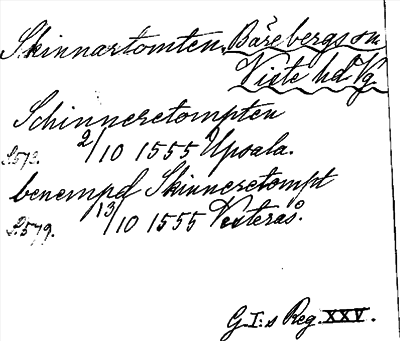 Skinnartomten, Bärebergs sn
Viste hd Vg.
Schinneretompten
S. 573. 2/10 1555 Upsala.
benempd Skinneretompt
S. 579. 13/10 1555 Vesterås.
G. I:s Reg. XXV.